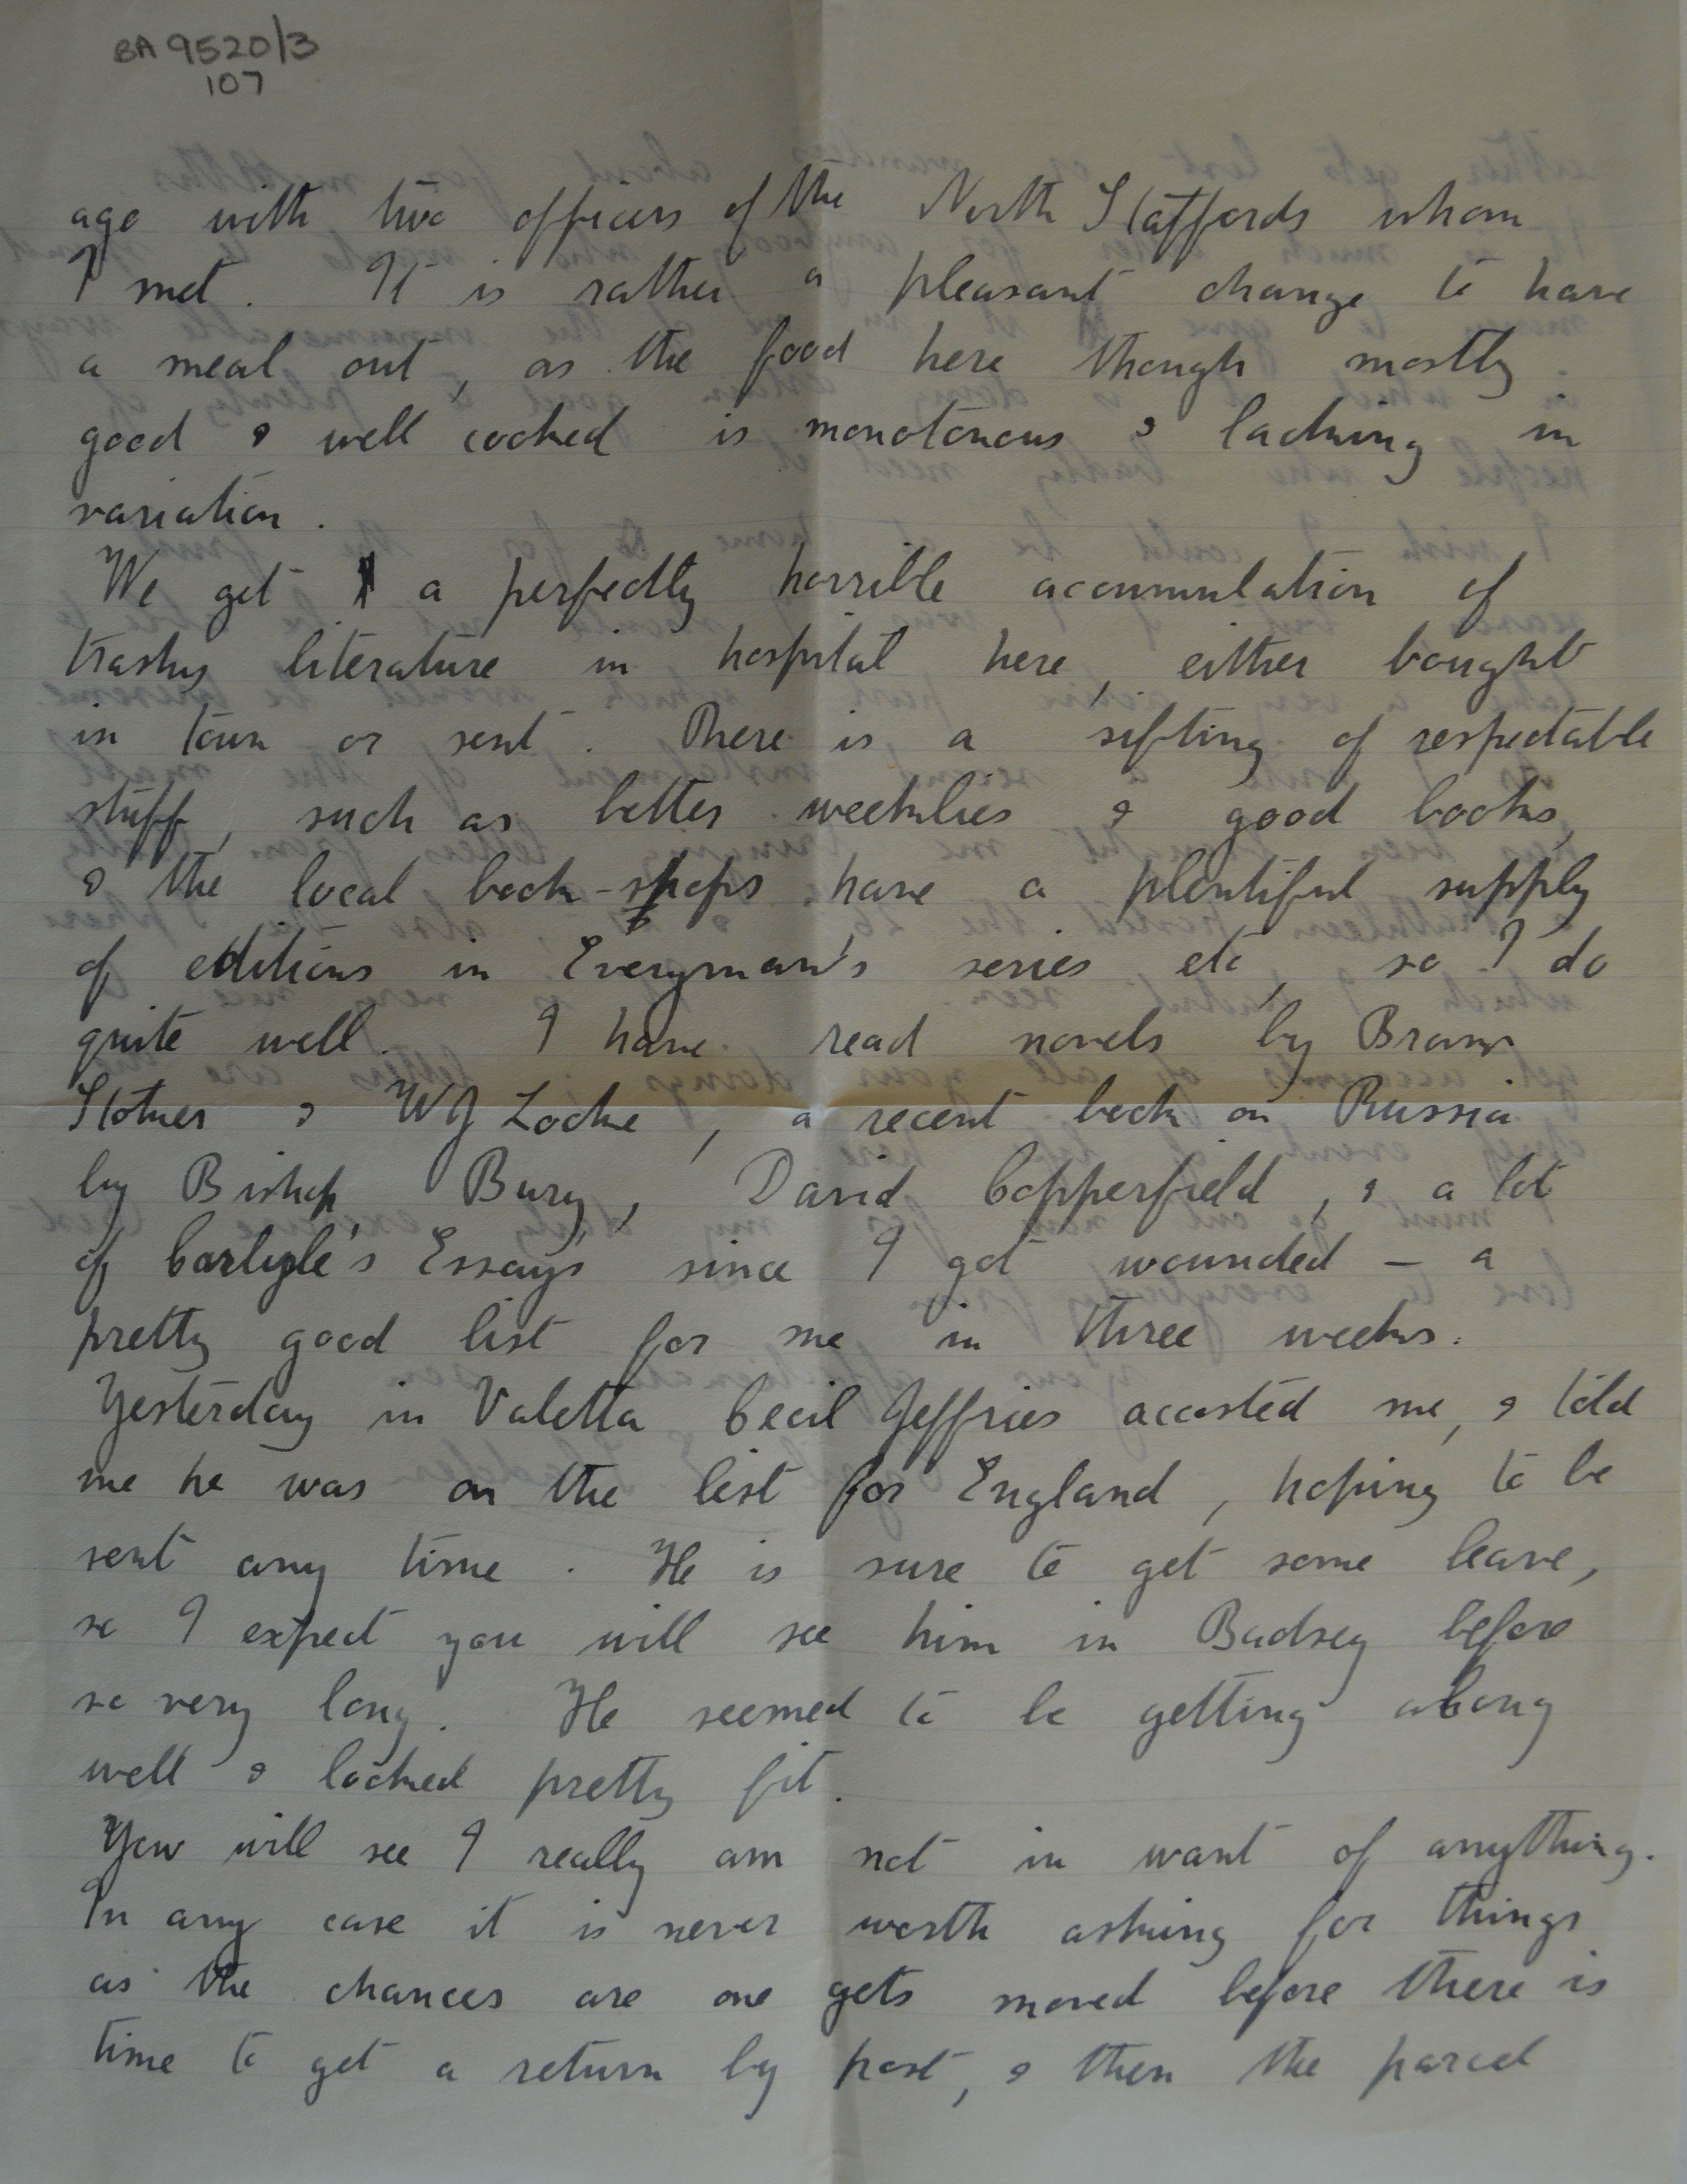 BA 9520/3
107
age with two officers of the North Staffords whom
I met. It is rather a pleasant change to have
a meal out, as the food here though mostly
good & well cooked is monotonous & lacking in
variation.
We get a perfectly horrible accumulation of
trashy literature in hospital here, either bought
in town or sent. There is a sifting of respectable
stuff, such as better weeklies & good books,
& the local book-shops have a plentiful supply
of editions in Everyman's series etc, so I do
quite well. I have read novels by Bram
Stoker & WJ Locke, a recent book on Russia
by Bishop Bury, David Copperfield, & a lot
of Carlyle's Essays since I got wounded – a
pretty good list for me in three weeks.
Yesterday in Valetta Cecil Jeffries accosted me, & told
me he was on the list for England, hoping to be
sent any time. He is sure to get some leave,
so I expect you will see him in Badsey before
so very long. He seemed to be getting along
well & looked pretty fit.
You will see I really am not in want of anything.
In any case it is never worth asking for things
as the chances are one gets moved before there is
time to get a return by post, & then the parcel